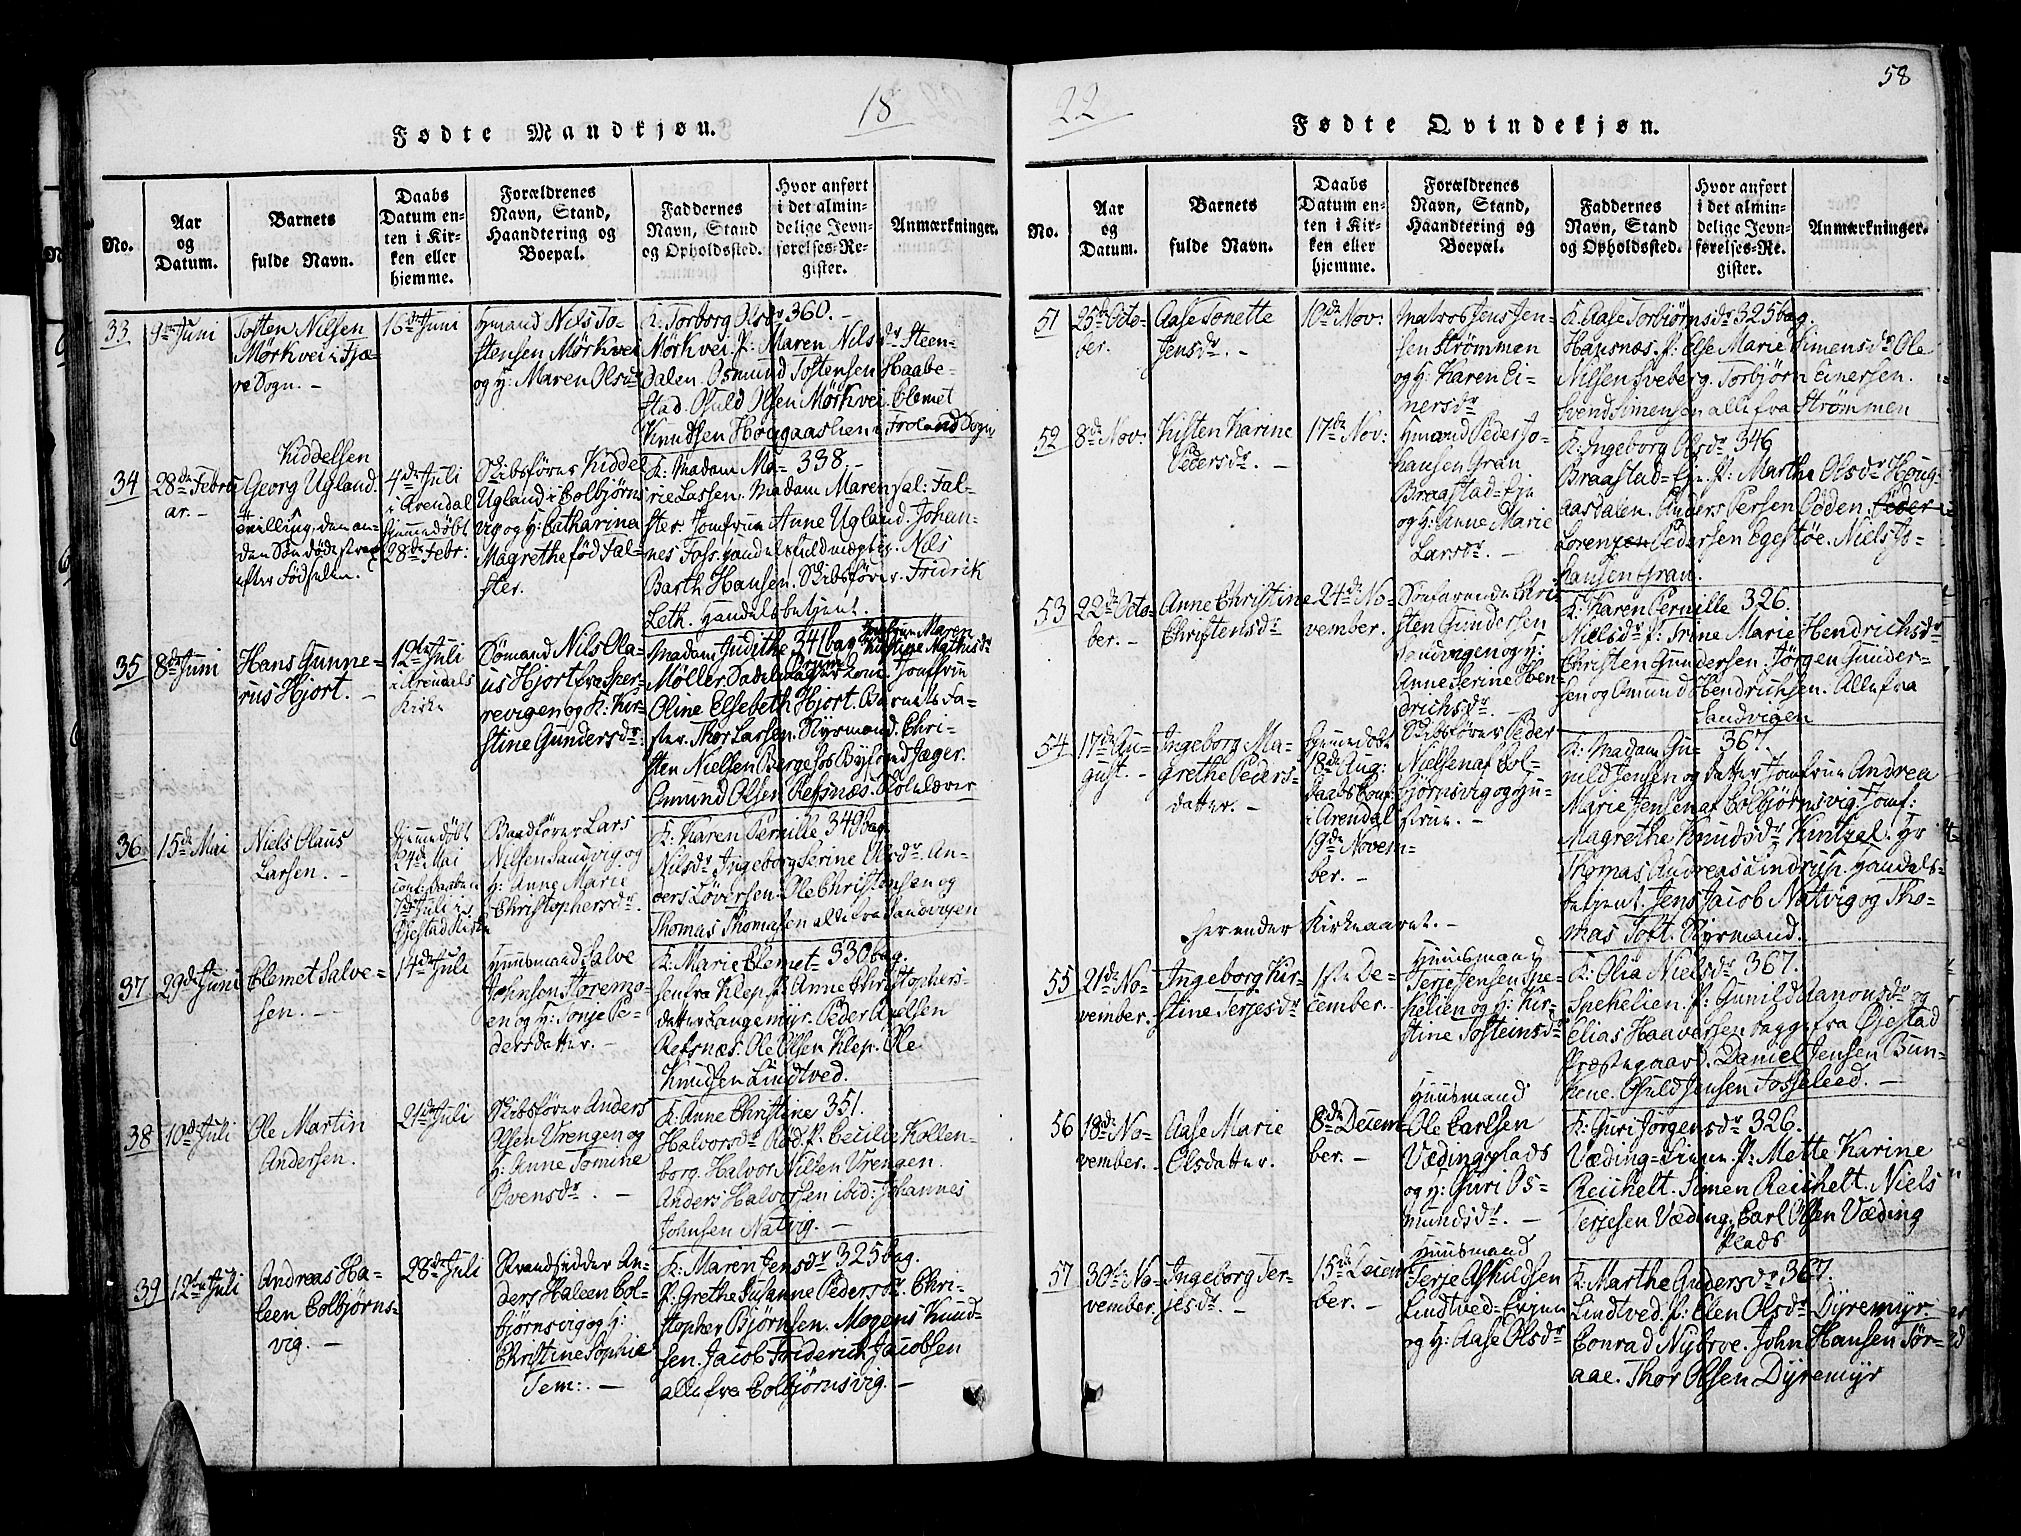 18
Fødte Mandkjøn.
No.
Aar
og
Datum.
Barnets
fulde Navn.
Daabs
Datum en-
ten i Kir-
ken eller
hjemme.
Forældrenes
Navn, Stand,
Haandtering og
Boepæl.
Faddernes
Navn, Stand
og Opholdssted.
Hvor anført
i det almin-
delige Jevn-
førelses-Re-
gister.
Anmærkninger.
33
9de Juni
Tosten Nilsen
Mørkvei i Fjæ-
re Sogn. -
16de Juni
Hmand Nils To-
stensen Mørkvei
og H: Maren Olsdr
K: Torborg Olsdr 360. -
Mørkvei. P: Maren Nilsdr Steen-
dalen. Osmund Tostensen Haabe-
stad. Osuld Olsen Mørkvei. Clemet
Knudsen Høugaaslien i Froland Sogn
34
28de Febru
ar. -
Kiddelsen
Georg Ugland.
Tvilling, den an-
den Søn døde strax
efter Fødselen.
4de Juli
i Arendal
Hjemmedøbt
28de Febr:
Skibsfører Kiddel
Ugland i Colbjørns
vig og H: Catharina
Magrethe fød Fal-
ster.
K: Madam Ma- 338 -
rie Lassen. Madam Maren Sal: Fal-
ster. Jomfrue Anne Ugland. Johan-
nes Foss. Handelsfuldmægtig. Nils
Barth Hansen. Skibsfører. Fridrik
Leth. Handelsbetjent.
35
8de Juni
Hans Gunne-
rus Hjort. -
12te Juli
i Arendals
Kirke
Sømand Nils Ola-
us Hjort fra Sper-
revigen og H: Kir-
stine Gundersdr:
Madam Judithe 341 bag. Jomfrue Maren
Kirstine Mathisdr
Møller. Sadelmager
Oline Elsebeth Hjort. Barnets Fa-
ster. Thor Larsen. Styrmand. Chri-
sten Nielsen Berge hos Byfoged Jæger.
Emund Olsen Refsnæs. Skolelærer
36
15de Mai
Niels Olaus
Larsen. -
Hjemmedøbt
24de Mai
conf: Daaben
7de Juli i
Øjestad Kirke
Baadfører Lars
Nilsen Sandvig og
H: Anne Marie
Christophersdr.
K: Karen Pernille 349 bag.
Nilsdr. Ingeborg Serine Olsdr. An-
ders Løversen. Ole Christensen og
Thomas Thomasen alle fra Sandvigen
37
29de Juni
Clemet Salve-
sen. -
14de Juli
Huusmand Salve
Johnson Storemo-
en og H: Tonje Pe-
dersdatter. -
K: Marie Clemet- 330 bag.
sen fra Klep. P: Anne Christophers-
datter Langemyr. Peder Axelsen
Refsnæs. Ole Olsen Klep. Ole
Knudsen Lindtved.
38
10de Juli
Ole Martin
Andersen.
21de Juli
Skibsfører Anders
Olsen Vrengen og
H: Anne Tomine
Evensdr. -
K: Anne Christine 351.
Halvorsdr Rød. P: Cecilie Kollen-
borg. Halvor Nilsen Vrengen.
Anders Halvorsen ibid: Johannes
Johnsen Natvig. -
39
12te Juli
Andreas Ha-
leen Colbjørns-
vig. -
28de Juli
Strandsidder An-
ders Haleen Col-
bjørnsvig og H:
Christine Sophie
Tem: -
K: Maren Jensdr 325 bag.
P: Grethe Susanne Pedersdr. Chri-
stopher Bjørnsen. Mogens Knud-
sen. Jacob Friderich Jacobsen
alle fra Colbjørnsvig. -
22
58
Fødte Qvindekjøn.
No.
Aar
og
Datum.
Barnets
fulde Navn.
Daabs
Datum en-
ten i Kir-
ken eller
hjemme.
Forældrenes
Navn, Stand,
Haandtering og
Boepæl.
Faddernes
Navn, Stand
og Opholdssted.
Hvor anført
i det almin-
delige Jevn-
førelses-Re-
gister.
Anmærkninger.
51
25de Octo-
ber.
Aase Tonette
Jensdr. -
10de Nov:
Matros Jens Jen-
sen Strømmen
og H: Karen Ei-
nersdr
K: Aase Torbjørnsdr 325 bag.
Hausnæs. P: Else Marie Simensdr Ole
Nilsen Sveberg. Torbjørn Einersen.
Svend Simensen alle fra Strømmen
52
8de Nov:
Kisten Karine
Pedersdr. -
17de Nov:
Hmand Peder Jo-
hansen Gran
Braastad-Eje
og H: Anne Marie
Larsdr. -
K: Ingeborg Olsdr 346
Braastad-Eje. P: Marthe Olsdr Houg-
aasdalen. Anders Persen Odden. Peder
Lorenzen Pedersen Egestøe. Niels Jo-
hansen Gran.
53
22de Octo-
ber. -
Anne Christine
Christensdr
24de No-
vember.
Søefarende Chri-
sten Gundersen
Sandvigen og H:
Anne Serine Hen-
drichsdr. -
K: Karen Pernille 326.
Nielsdr P: Trine Marie Hendrichsdr
Christen Gundersen. Jørgen Gunder-
sen og Amund Hendrichsen. Alle fra
Sandvigen
54
17de Au-
gust. -
Ingeborg Ma-
grethe Peders-
datter. -
Hjemmedøbt
18de Aug:
Daabs Conf:
i Arendal
19de Novem-
ber. -
Skibsfører Peder
Nielsen af Col-
bjørnsvig og Hu-
strue. -
K: Madam Gu- 367
nild Jensen og Datter Jomfrue Andrea
Marie Jensen af Colbjørnsvig. Jomf:
Magrethe Knudsdr Kuntzel. Hr
Thomas Andreas Lindrup. Handels-
betjent. Jens Jacob Natvig og Tho-
mas Toft. Styrmand.
Her ender Kirkeaaret. -
55
21de No-
vember.
Ingeborg Kir-
stine Terjesdr
1ste De-
cember.
Huusmand
Terje Jensen Spe-
kelien og H: Kir-
stine Tosteinsdr
K: Olia Nielsdr 367.
Spekelien. P: Gunild Aanonsdr og
Elias Haaversen begge fra Øjestad
Præstegaard. Daniel Jensen Bun-
kene. Osuld Jensen Fosseleed. -
56
18de No-
vember. -
Aase Marie
Olsdatter.
8de Decem-
ber. -
Huusmand
Ole Carlsen
Vædingsplads
og H: Guri Os-
mundsdr. -
K: Guri Jørgensdr 326.
Væding-Siene. P: Mette Karine
Reichelt. Simen Reichelt. Niels
Terjesen Væding. Carl Olsen Væding
Plads
57
30te No-
vember.
Ingeborg Ter-
jesdr. -
15de Decem
ber. -
Huusmand
Terje Askildsen
Lindtved-Ejene
og H: Aase Olsdr
K: Marthe Andersdr 367.
Lindtved. P: Elen Olsdr Dyremyr.
Conrad Nyborve. John Hansen Sør-
aae. Thor Olsen Dyremyr